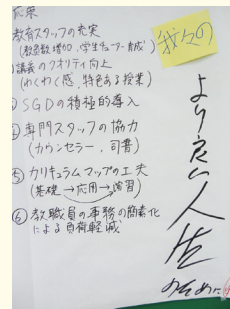 応案
教育スタッフの充実
(教員数増加、学生チューター育成)
講義のクオリティ向上
(わくわく感、特色ある授業)
SGDの積極的導入
④専門スタッフの協力
(カウンセラー、司書)
⑤カリキュラムマップの工夫
(基礎→応用→演習)
⑥教職員の事務の簡素化
による負荷軽減
我々の
より良い人生
のために